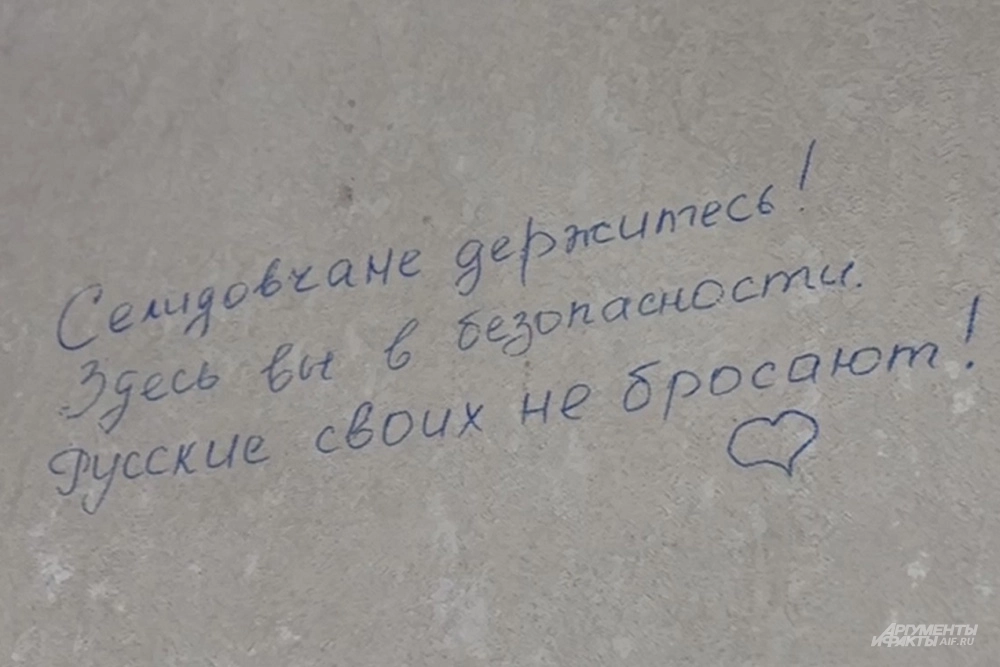 Селидовчане держитесь!
Здесь вы в безопасности.
Русские своих не бросают!
АРГУМЕНТЫ
И ФАКТЫ AIF.RU